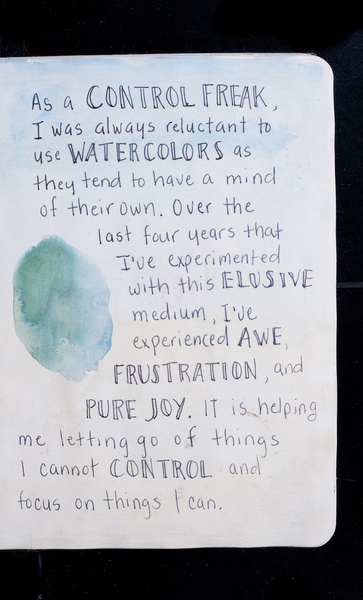 As a CONTROL FREAK,
I was always reluctant to
use WATERCOLORS as
they tend to have a mind
of their own. Over the
last four years that
I've experimented
with this ELUSIVE
medium, I've
experienced AWE,
FRUSTRATION, and
PURE JOY. IT is helping
me letting go of things
I cannot CONTROL and
focus on things I can.